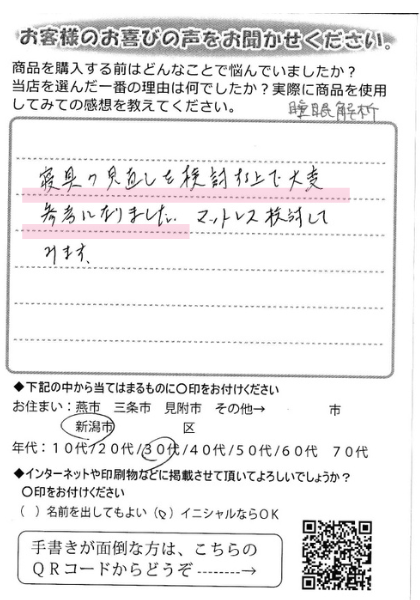 お客様のお喜びの声をお聞かせください。
商品を購入する前はどんなことで悩んでいましたか？
当店を選んだ一番の理由は何でしたか？実際に商品を使用
してみての感想を教えてください。
睡眠解析
寝具の見直しを検討する上で大変
参考になりました。マットレス検討して
みます。
◆下記の中から当てはまるものに〇印をお付けください
お住まい：燕市　三条市　見附市　その他→　　　　市
新潟市　　　　　区
年代：１０代/２０代/３０代/４０代/５０代/６０代　７０代
◆インターネットや印刷物などに掲載させて頂いてよろしいでしょうか？
〇印をお付けください
（　）名前を出してもよい（〇）イニシャルならＯＫ
手書きが面倒な方は、こちらの
ＱＲコードからどうぞ--------→